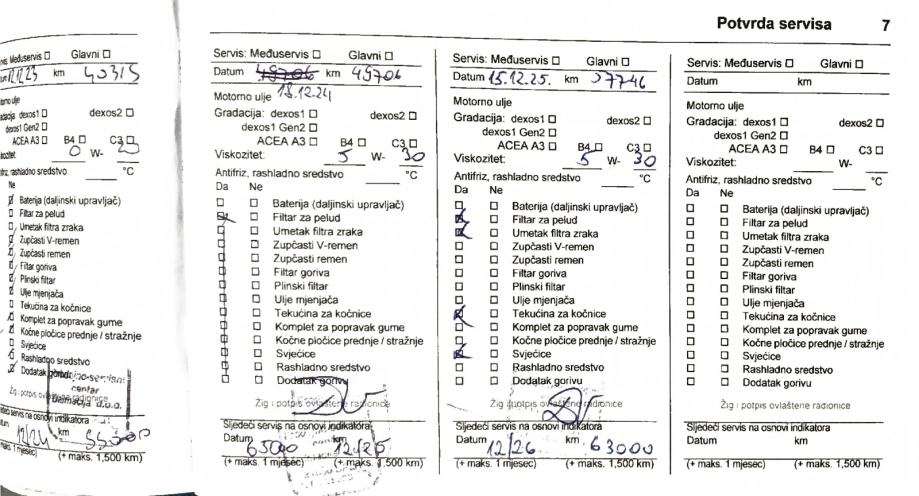 Potvrda servisa 7
nis: Međuservis ☐ Glavni ☐
12.12.23 km 40315
torno ulje
dacija: dexos1 ☐ dexos2 ☐
dexos1 Gen2 ☐
ACEA A3 ☐ B4 ☐ C3 ☐
kozitet: 0 W-
friz, rashladno sredstvo °C
Ne
Baterija (daljinski upravljač)
Filtar za pelud
Umetak filtra zraka
Zupčasti V-remen
Zupčasti remen
Filtar goriva
Plinski filtar
Ulje mjenjača
Tekućina za kočnice
Komplet za popravak gume
Kočne pločice prednje / stražnje
Svjećice
Rashladno sredstvo
Dodatak gorivu
centar
d.o.o.
Žig i potpis ovlaštene radionice
deći servis na osnovi indikatora
12/24 km 55000
maks. 1 mjesec) (+ maks. 1,500 km)
Servis: Međuservis ☐ Glavni ☐
Datum 49706 km 49706
18.12.24
Motorno ulje
Gradacija: dexos1 ☐ dexos2 ☐
dexos1 Gen2 ☐
ACEA A3 ☐ B4 ☐ C3 ☐
Viskozitet: 5 W- 30
Antifriz, rashladno sredstvo °C
Da Ne
Baterija (daljinski upravljač)
Filtar za pelud
Umetak filtra zraka
Zupčasti V-remen
Zupčasti remen
Filtar goriva
Plinski filtar
Ulje mjenjača
Tekućina za kočnice
Komplet za popravak gume
Kočne pločice prednje / stražnje
Svjećice
Rashladno sredstvo
Dodatak gorivu
Žig i potpis ovlaštene radionice
Sljedeći servis na osnovi indikatora
Datum km
65000 12/25
(+ maks. 1 mjesec) (+ maks. 1,500 km)
Servis: Međuservis ☐ Glavni ☐
Datum 15.12.25. km 57746
Motorno ulje
Gradacija: dexos1 ☐ dexos2 ☐
dexos1 Gen2 ☐
ACEA A3 ☐ B4 ☐ C3 ☐
Viskozitet: 5 W- 30
Antifriz, rashladno sredstvo °C
Da Ne
Baterija (daljinski upravljač)
Filtar za pelud
Umetak filtra zraka
Zupčasti V-remen
Zupčasti remen
Filtar goriva
Plinski filtar
Ulje mjenjača
Tekućina za kočnice
Komplet za popravak gume
Kočne pločice prednje / stražnje
Svjećice
Rashladno sredstvo
Dodatak gorivu
Žig i potpis ovlaštene radionice
Sljedeći servis na osnovi indikatora
Datum 12/26 km 63000
(+ maks. 1 mjesec) (+ maks. 1,500 km)
Servis: Međuservis ☐ Glavni ☐
Datum km
Motorno ulje
Gradacija: dexos1 ☐ dexos2 ☐
dexos1 Gen2 ☐
ACEA A3 ☐ B4 ☐ C3 ☐
Viskozitet: W-
Antifriz, rashladno sredstvo °C
Da Ne
Baterija (daljinski upravljač)
Filtar za pelud
Umetak filtra zraka
Zupčasti V-remen
Zupčasti remen
Filtar goriva
Plinski filtar
Ulje mjenjača
Tekućina za kočnice
Komplet za popravak gume
Kočne pločice prednje / stražnje
Svjećice
Rashladno sredstvo
Dodatak gorivu
Žig i potpis ovlaštene radionice
Sljedeći servis na osnovi indikatora
Datum km
(+ maks. 1 mjesec) (+ maks. 1,500 km)